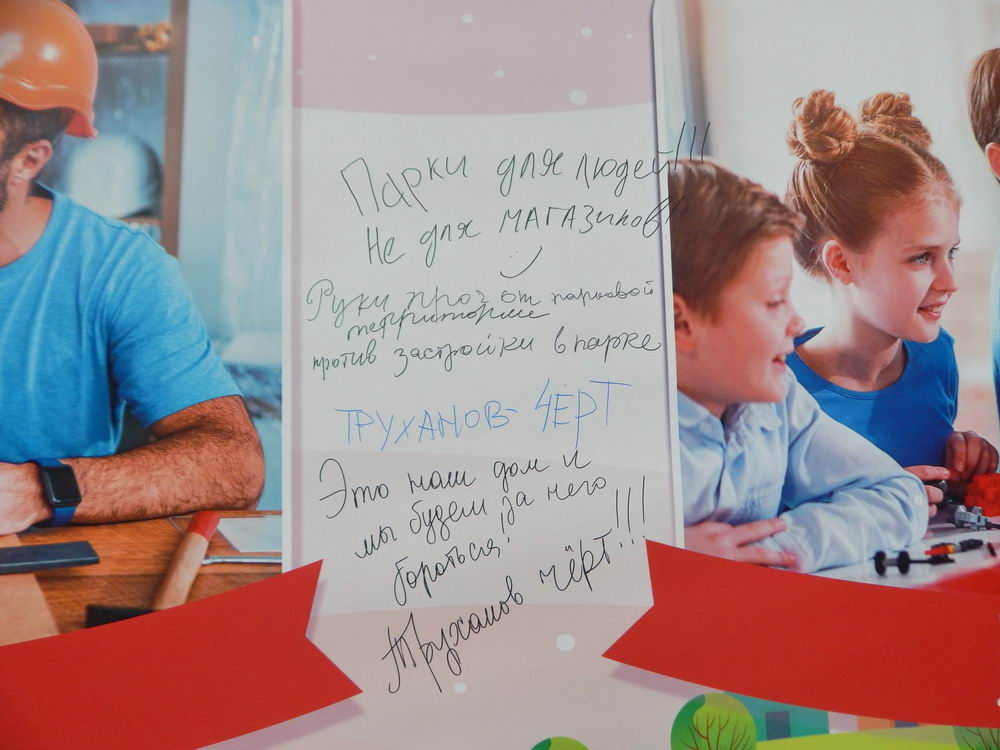 Парки для людей!!!
Не для МАГАЗинов!
Руки проч от парковой
территории
против застройки в парке
ТРУХАНОВ - ЧЁРТ
Это наш дом и
мы будем за него
бороться!
Труханов чёрт!!!